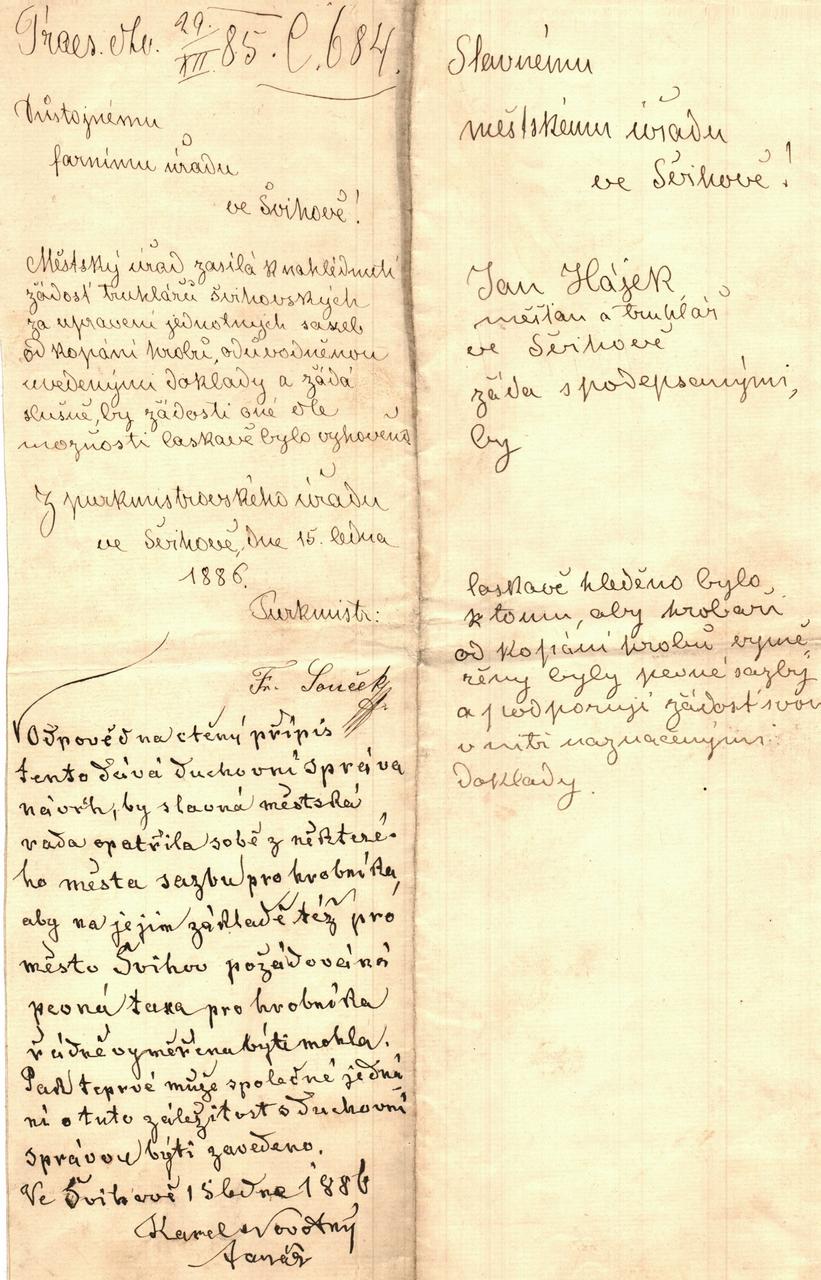 Praes. dto. 29/XII 85. Č. 684.
Důstojnému
farnímu úřadu
ve Švihově!
Městský úřad zasílá k nahlédnutí
žádost truhlářů Švihovských
za upravení jednotných sazeb
od kopání hrobů, odůvodněnou
uvedenými doklady a žádá
slušně, by žádosti oné dle
možnosti laskavě bylo vyhověno.
Z purkmistrovského úřadu
ve Švihově, dne 15. ledna
1886.
Purkmistr:
Fr. Souček
V Odpověd na ctěný přípis
tento dává duchovní správa
návrh, by slavná městská
rada opatřila sobě z některé-
ho města sazbu pro hrobníka,
aby na jejím základě též pro
město Švihov požadovaná
pevná taxa pro hrobníka
řádně vyměřena býti mohla.
Pak teprvé může společné jedná
ní o tuto záležitost s duchovní
správou býti zavedeno.
Ve Švihově 15 ledna 1886
Karel Novotný
farář
Slavnému
městskému úřadu
ve Švihově!
Jan Hájek
měšťan a truhlář
ve Švihově
žádá s podepsanými,
by
laskavě hleděno bylo
k tomu, aby hrobaři
od kopání hrobů vymě-
řeny byly pevné sazby
a podporují žádost svou
v nitř naznačenými
doklady.